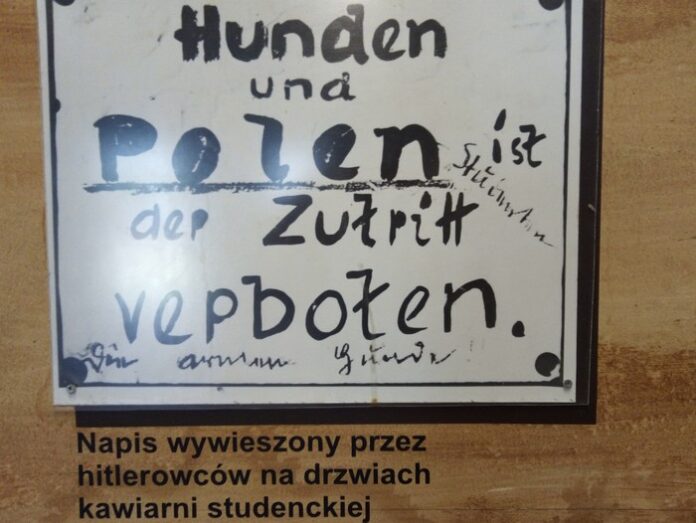 Hunden
und
Polen ist
der Zutritt
verboten.
Die armen Hunde
Napis wywieszony przez
hitlerowców na drzwiach
kawiarni studenckiej